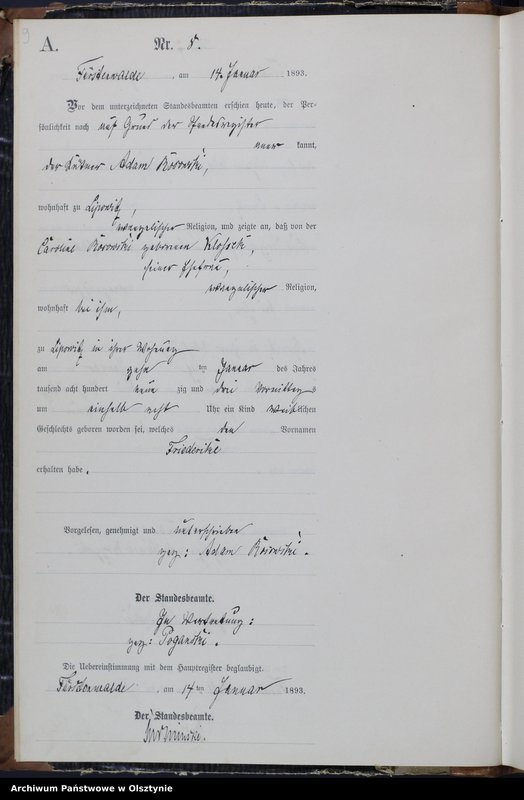 9
A.
Nr. 5.
Försterwalde, am 14. Januar 1893.
Vor dem unterzeichneten Standesbeamten erschien heute, der Per-
sönlichkeit nach auf Grund der Standesregister
kannt,
der Käthner Adam
wohnhaft zu Lipowitz,
evangelischer Religion, und zeigte an, daß von der
Caroline geborenen
seiner Ehefrau,
evangelischer Religion,
wohnhaft bei ihm,
zu Lipowitz in ihrer Wohnung
am zehn ten Januar des Jahres
tausend acht hundert neun zig und drei Vormittags
um einhalb acht Uhr ein Kind weiblichen
Geschlechts geboren worden sei, welches den Vornamen
Friederike
erhalten habe.
Vorgelesen, genehmigt und unterschrieben
gez.: Adam
Der Standesbeamte.
In Vertretung:
gez.: Poganski.
Die Uebereinstimmung mit dem Hauptregister beglaubigt.
Försterwalde, am 14 ten Januar 1893.
Der Standesbeamte.
Archiwum Państwowe w Olsztynie